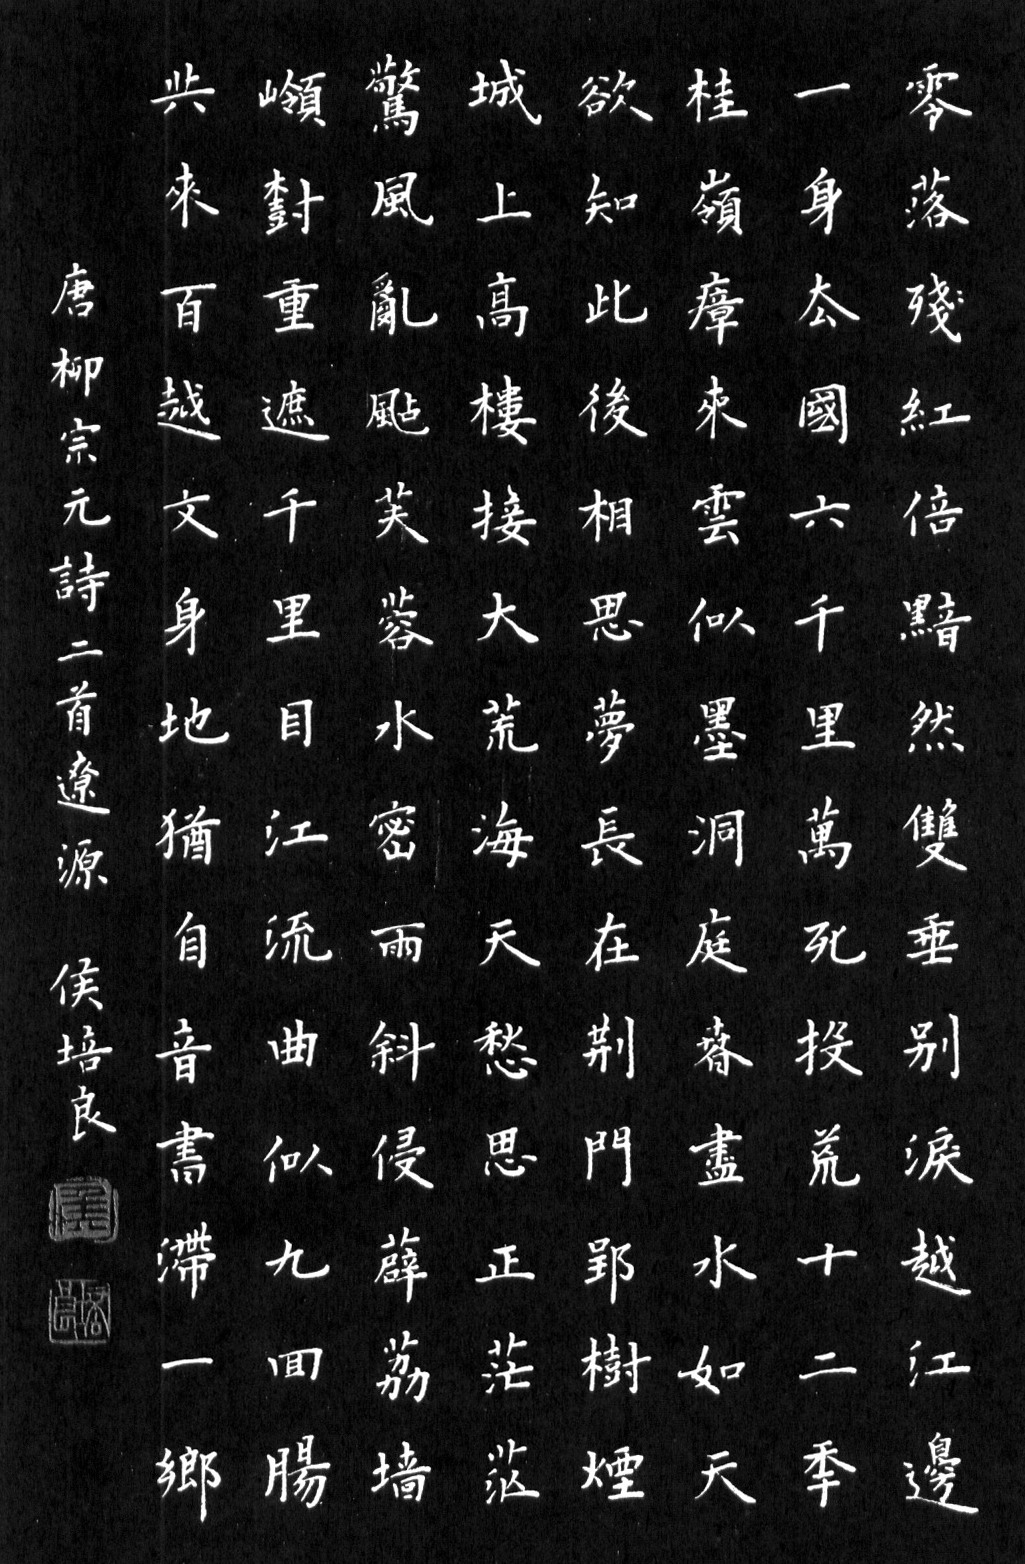 零落殘紅倍黯然雙垂别淚越江邊
一身去國六千里萬死投荒十二年
桂嶺瘴來雲似墨洞庭春盡水如天
欲知此後相思夢長在荆門郢樹煙
城上高樓接大荒海天愁思正茫茫
驚風亂颭芙蓉水密雨斜侵薜荔墙
嶺對重遮千里目江流曲似九回腸
共來百越文身地猶自音書滯一鄉
唐柳宗元詩二首遼源 侯培良